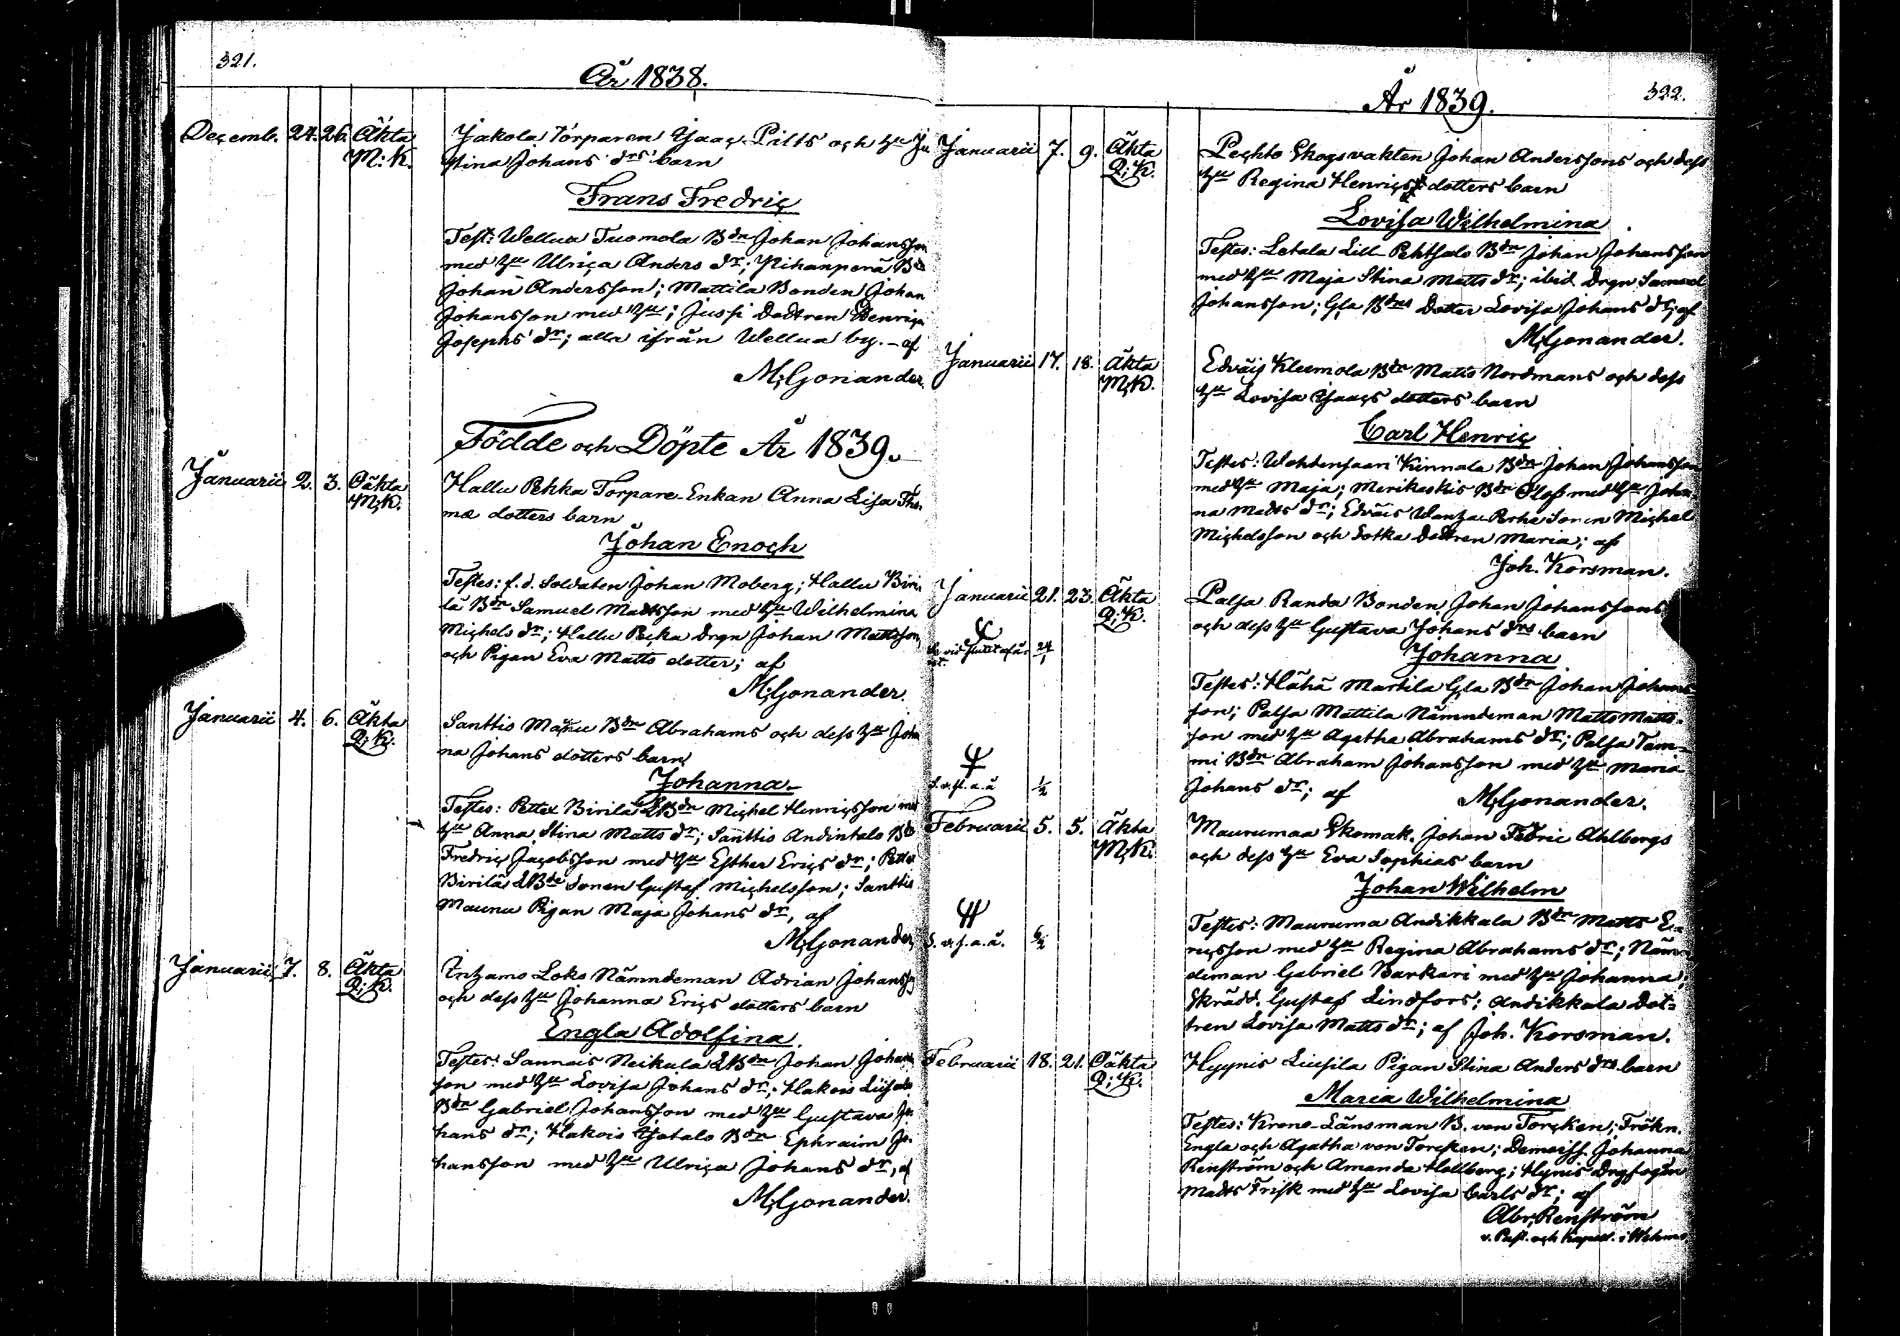 321.
År 1838.
Decemb. 24. 26. Äkta M:K.
Jakola Torparen Isaac Pilts och Hu
Stina Johans drs barn
Frans Fredric
Test: Wellua Tuomola Bdn Johan Johansson
med Hu Ulrica Anders dr; Bd
Johan Andersson; Mattila Bonden Johan
Johansson med Hu; Jussi Dottren Henrica
Josephs dr; alla ifrån Wellua by. – af
M;Gonander
Födde och Döpte År 1839.
Januarii 2. 3. Oäkta M;K.
Hallu Pekka Torpare-Enkan Anna Lisa Tho-
mæ dotters barn
Johan Enoch
Testes: f.d. Soldaten Johan Moberg; Hallu Biri-
lä Bdn Samuel Mattsson med Hu Wilhelmina
Michels dr; Hallu Pecka drgn Johan Mattsson,
och Pigan Eva Matts dotter; af
M;Gonander.
Januarii 4. 6. Äkta Q;K.
Santtio Maunu Bdn Abrahams och dess Hu Johan-
na Johans dotters barn
Johanna
Testes: Pettex Birilä LBdn Michel Henricsson med
Hu Anna Stina Matts dr; Santtio Andintalo Bdn
Fredric Jacobsson med Hu Esther Erics dr; Pettex
Birilä LBds Sonen Gustaf Michelsson; Santtio
Maunu Pigan Maja Johans dr, af
M;Gonander,
Januarii 7. 8. Äkta Q;K.
Loko Nämndeman Adrian Johanss
och dess Hu Johanna Erics dotters barn
Engla Adolfina.
Testes: Sannais Neikula LBdn Johan Johans-
son med Hu Lovisa Johans dr; Hakois
Bdn Gabriel Johansson med Hu Gustava Jo-
hans dr; Hakois Isotalo Bdn Ephraim Jo-
hansson med Hu Ulrica Johans dr, af
M;Gonander.
År 1839.
322.
Januarii 7. 9. Äkta Q;K.
Pechto Skogsvakten Johan Anderssons och dess
Hu Regina Henrics dotters barn
Lovisa Wilhelmina
Testes: Letala Lill Pehtsalo Bdn Johan Johansson
med Hu Maja Stina Matts dr; ibid drgn Samuel
Johansson; Gla Bdns Dotter Lovisa Johans dr; af
M;Gonander.
Januarii 17. 18. Äkta M;K.
Edväis Kleemola Bdn Matts Nordmans och dess
Hu Lovisa Isaacs dotters barn
Carl Henric
Testes: Wohdensaari Kinnala Bdn Johan Johansson
med Hu Maja; Merikoskis Bdn Olof med Hu Johan-
na Matts dr; Edväis Sonen Michel
Michelsson och Sotka Dottren Maria; af
Joh. Korsman.
Januarii 21. 23. Äkta Q;K.
Palsa Randa Bonden Johan Johanssons
och dess Hu Gustava Johans drs barn
Johanna
Se vid slutet af år- 24/1
et.
Testes: Hähä Martila Gla Bdn Johan Johans-
son; Palsa Mattila Nämndeman Matts Matts-
son med Hu Agatha Abrahams dr; Palsa Tam-
mi Bdn Abraham Johansson med Hu Maria
Johans dr; af M;Gonander.
S.v.sl.a.å 1/2
Februarii 5. 5. Äkta M;K.
Maurumaa Skomak. Johan Fedric Ahlbergs
och dess Hu Eva Sophias barn
Johan Wilhelm
S.v.s.a.å. 6/2
Testes: Mauruma Andikkala Bdn Matts En-
ricsson med Hu Regina Abrahams dr; Nämn-
deman Gabriel Barkari med Hu Johanna;
Skrädd. Gustaf Lindfors; Andikkala Dot-
tren Lovisa Matts dr; af Joh. Korsman.
Februarii 18. 21. Oäkta Q;K.
Hyynis Liusila Pigan Stina Anders drs barn
Maria Wilhelmina
Testes: Krono-Länsman B. von Torcken; Frökn.
Engla och Agatha von Torcken; Demoiss. Johanna
Renström och Amanda Hollberg; Hynis
Matts Frisk med Hu Lovisa Carls dr; af
Abr; Renström
v. Past. och Kapell. i Wehmo